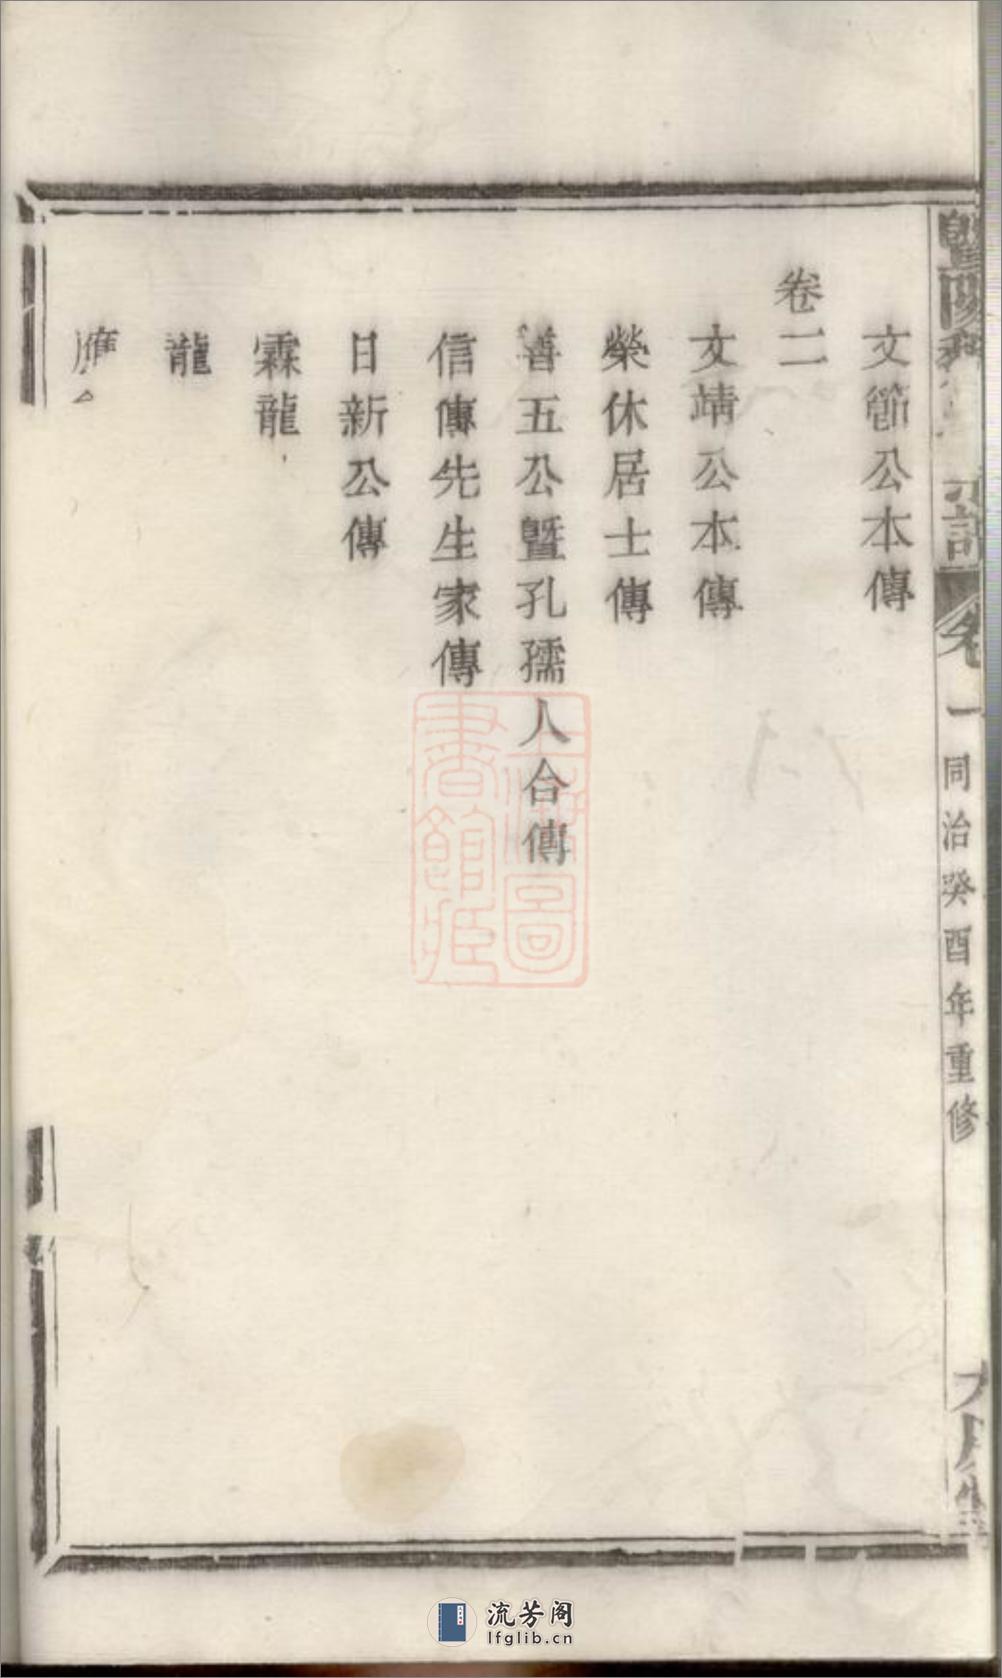 暨陽
卷一
同治癸酉年重修
文節公本傳
卷二
文靖公本傳
榮休居士傳
善五公暨孔孺人合傳
信傳先生家傳
日新公傳
霖龍
龍
上海圖書館藏
流芳阁
lfglib.cn